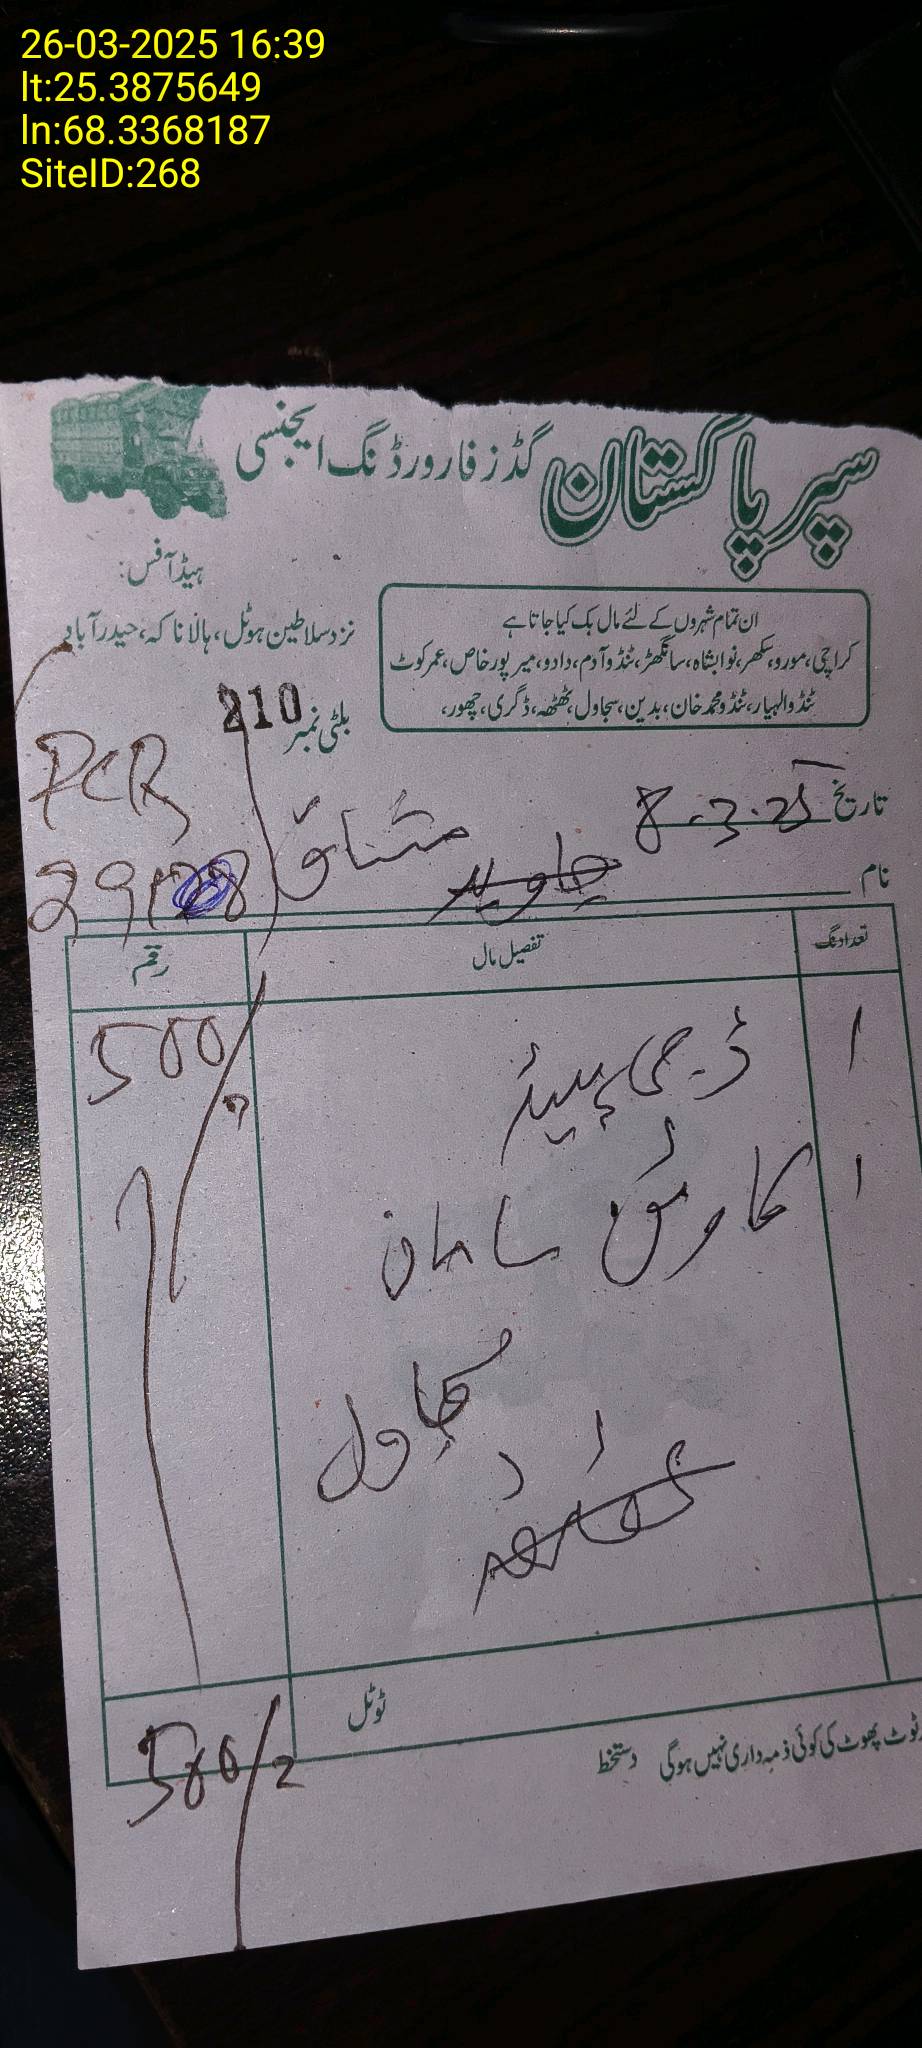 26-03-2025 16:39
lt:25.3875649
ln:68.3368187
SiteID:268
سپر پاکستان گڈز فارورڈنگ ایجنسی
ہیڈ آفس:
نزد سلاطین ہوٹل، ہالا ناکہ، حیدرآباد
ان تمام شہروں کے لئے مال بک کیا جاتا ہے
کراچی، مورو، سکھر، نوابشاہ، سانگھڑ، ٹنڈو آدم، دادو، میرپور خاص، عمر کوٹ
ٹنڈوالہیار، ٹنڈو محمد خان، بدین، سجاول، ٹھٹھہ، ڈگری، چھور،
بلٹی نمبر 210
PCR
تاریخ 8.3.25
نام مشتاق جاوید
تعداد نگ تفصیل مال رقم
1 ڈی جی 500/
1 سامان
سجاول
ٹوٹل 500/
ٹوٹ پھوٹ کی کوئی ذمہ داری نہیں ہوگی دستخط